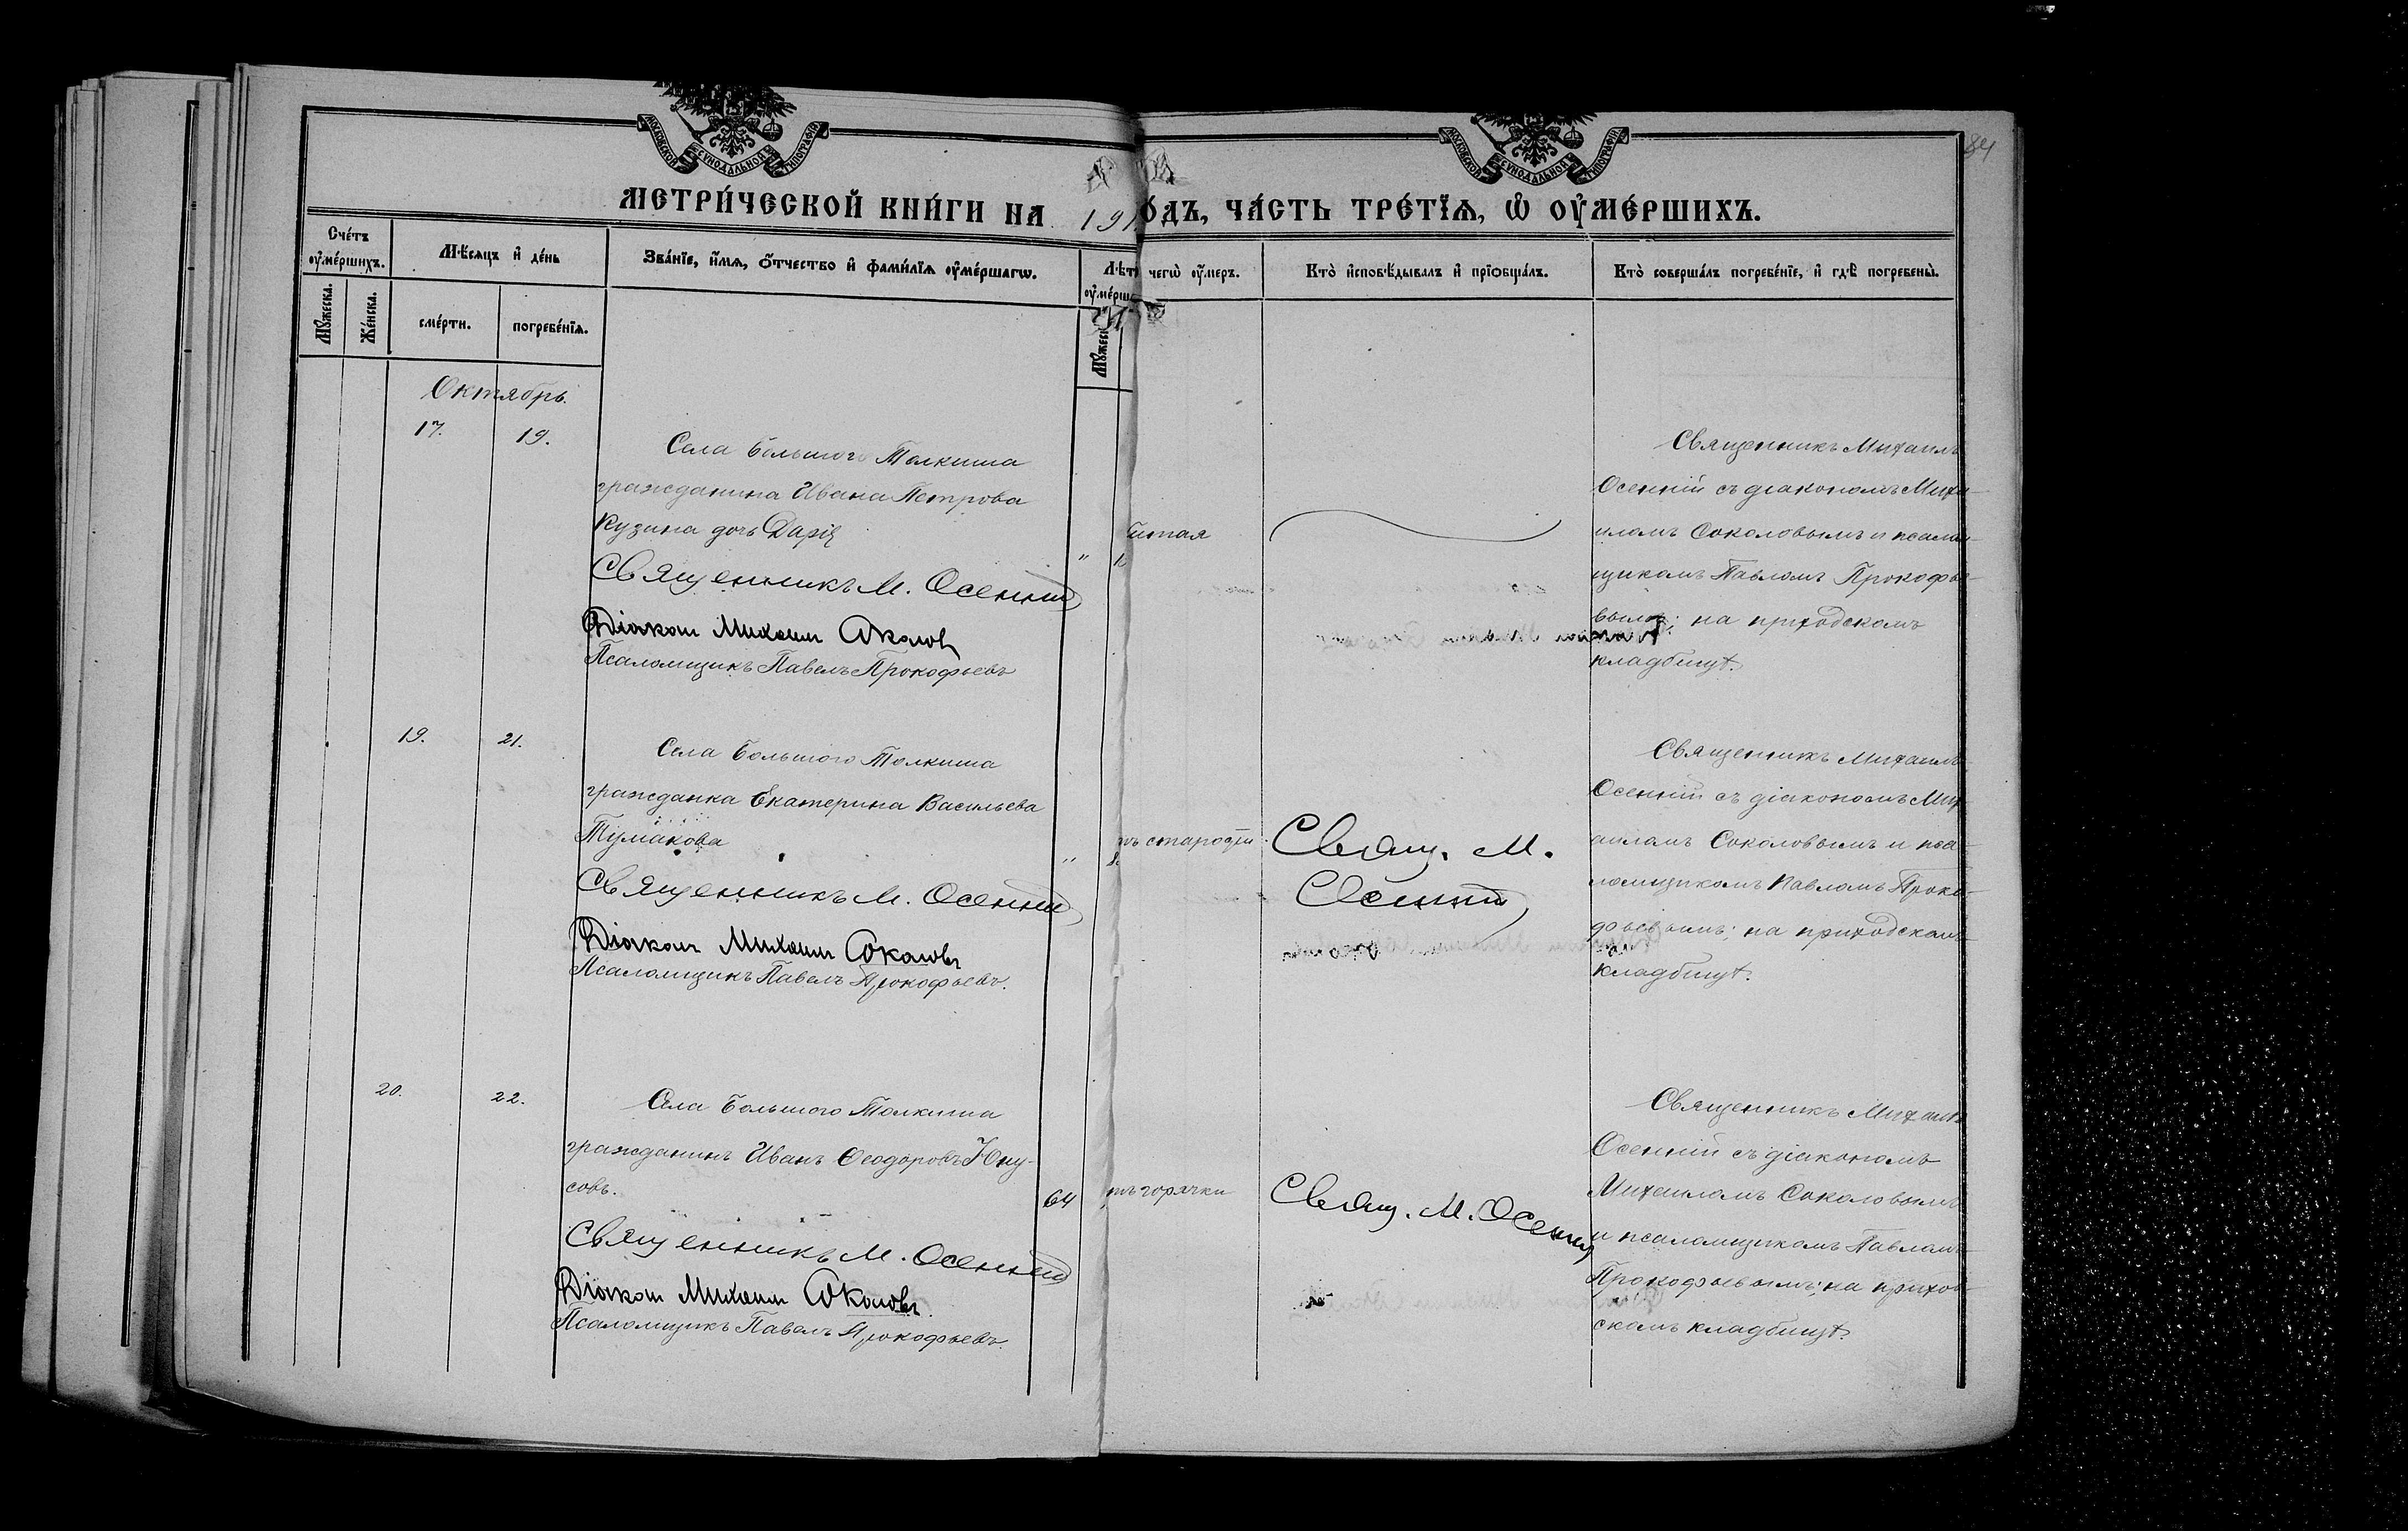 84
МОСКОВСКОЙ СУНОДАЛЬНОЙ ТИПОГРАФІИ
МОСКОВСКОЙ СУНОДАЛЬНОЙ ТИПОГРАФІИ
МЕТРИ́ЧЕСКОЙ КНИ́ГИ НА 191
О́ДЪ, ЧА́СТЬ ТРЕ́ТЇѦ, Ѡ҆ ОУ҆МЕ́РШИХЪ.
Сче́тъ оу҆ме́ршихъ.
Мѣ́сяцъ и҆ де́нь
Зва́нїе, и҆́мѧ, ѻ҆́тчество и҆ фами́лїѧ оу҆ме́ршагѡ.
Лѣт
оу҆ме́рш
чегѡ̀ оу҆́меръ.
Кто̀ и҆сповѣ́дывалъ и҆ прїѻбща́лъ.
Кто̀ соверша́лъ погребе́нїе, и҆ гдѣ̀ погребены̀.
Мꙋ́жеска.
Же́нска.
сме́рти.
погребе́нїѧ.
Мꙋ́жеск
Октябрь.
17.
19.
Села Большого Толкиша
гражданина Ивана Петрова
Кузина дочь Дарія
"
Священникъ М. Осенній
Діаконъ Михаилъ Соколовъ
Псаломщикъ Павелъ Прокофьевъ
Священникъ Михаилъ
Осенній съ діакономъ Миха-
иломъ Соколовымъ и псалом-
щикомъ Павломъ Прокофье-
вымъ; на приходскомъ
кладбищѣ.
19.
21.
Села Большого Толкиша
гражданка Екатерина Васильева
Тумакова
"
ъ старости
Священникъ М. Осенній
Діаконъ Михаилъ Соколовъ
Псаломщикъ Павелъ Прокофьевъ.
Свящ. М.
Осенній
Священникъ Михаилъ
Осенній съ діакономъ Мих-
аиломъ Соколовымъ и пса-
ломщикомъ Павломъ Проко-
фьевымъ; на приходскомъ
кладбищѣ.
20.
22.
Села Большого Толкиша
гражданинъ Иванъ Ѳеодоровъ Юну-
совъ.
64
тъ горячки
Священникъ М. Осенній
Діаконъ Михаилъ Соколовъ.
Псаломщикъ Павелъ Прокофьевъ.
Свящ. М. Осенній
Священникъ Михаилъ
Осенній съ діакономъ
Михаиломъ Соколовымъ
и псаломщикомъ Павломъ
Прокофьевымъ; на приход-
скомъ кладбищѣ.